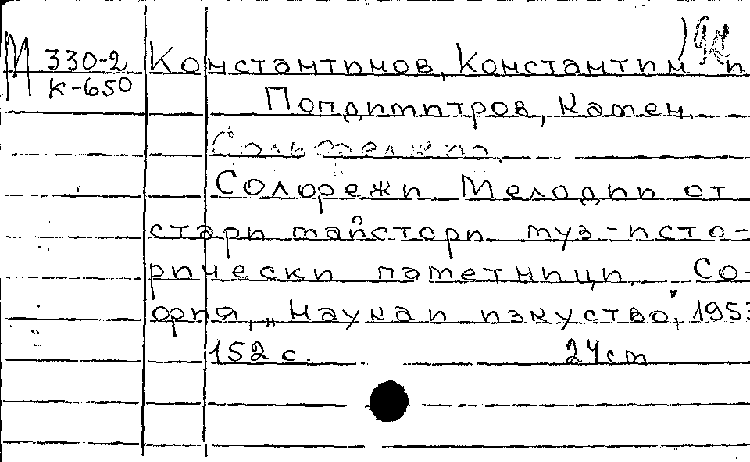 М 330-2
К-650
Константинов, Константин и
Попдимитров, Камен
Солфежи Мелодии от
стари майстори муз.-исто-
рически паметници. Со-
фия, „Наука и изкуство", 1953
152 с. 24 cm